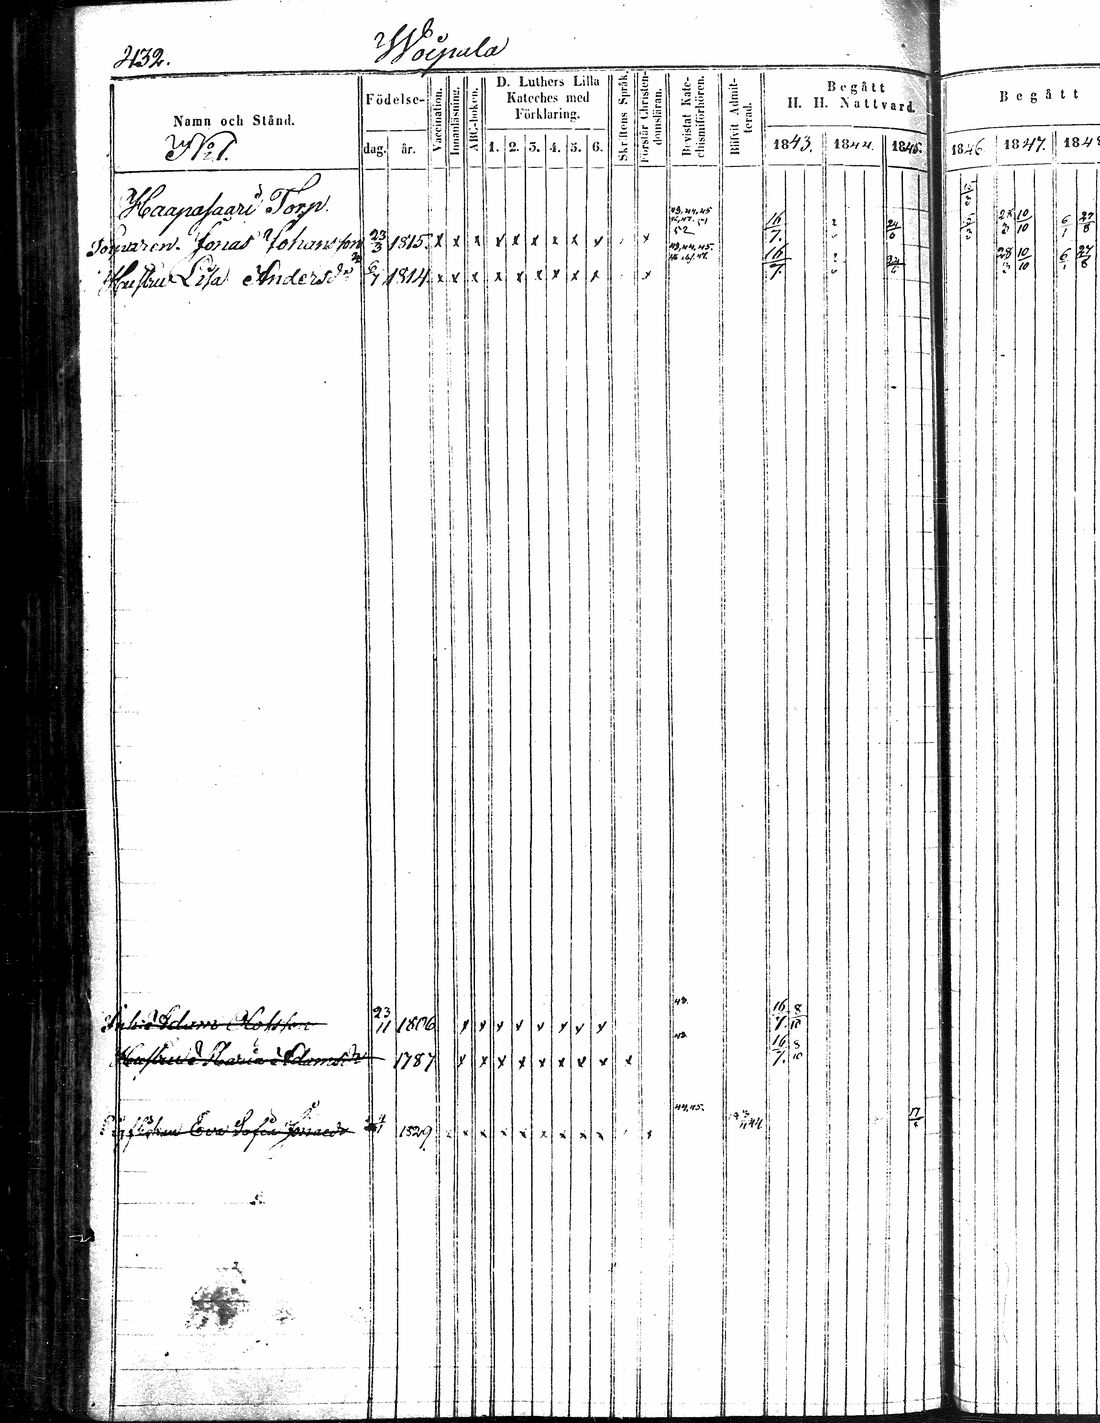 432.
Woipala
Namn och Stånd.
No 1.
Födelse-
dag.
år.
Vaccination.
Innanläsning.
ABC-boken.
D. Luthers Lilla
Kateches med
Förklaring.
1. 2. 3. 4. 5. 6.
Skriftens Språk.
Förstår Christen-
domsläran.
Bevistat Kate-
chismiförhören.
Blifvit Admit-
terad.
Begått
H. H. Nattvard.
1843. 1844. 1845.
Begått
1846. 1847. 1848
Haapasaari Torp.
Jonas Johansson 23/3 1815. x x x x x x x x x x 16/7. 24/6 28/3 10/10 6/1 27/8
Hustru Lisa Andersdr 6/7 1814. x x x x x x x x x x 16/7. 24/6 28/3 10/10 6/1 27/8
Adam 23/11 1806 x x x x x x x x 43. 16/7. 8/10
Hustru Maria Adamsdr 1787 x x x x x x x x x 43. 16/7. 8/10
Eva Sofia 1829 x x x x x x x x 44, 45. 17/6